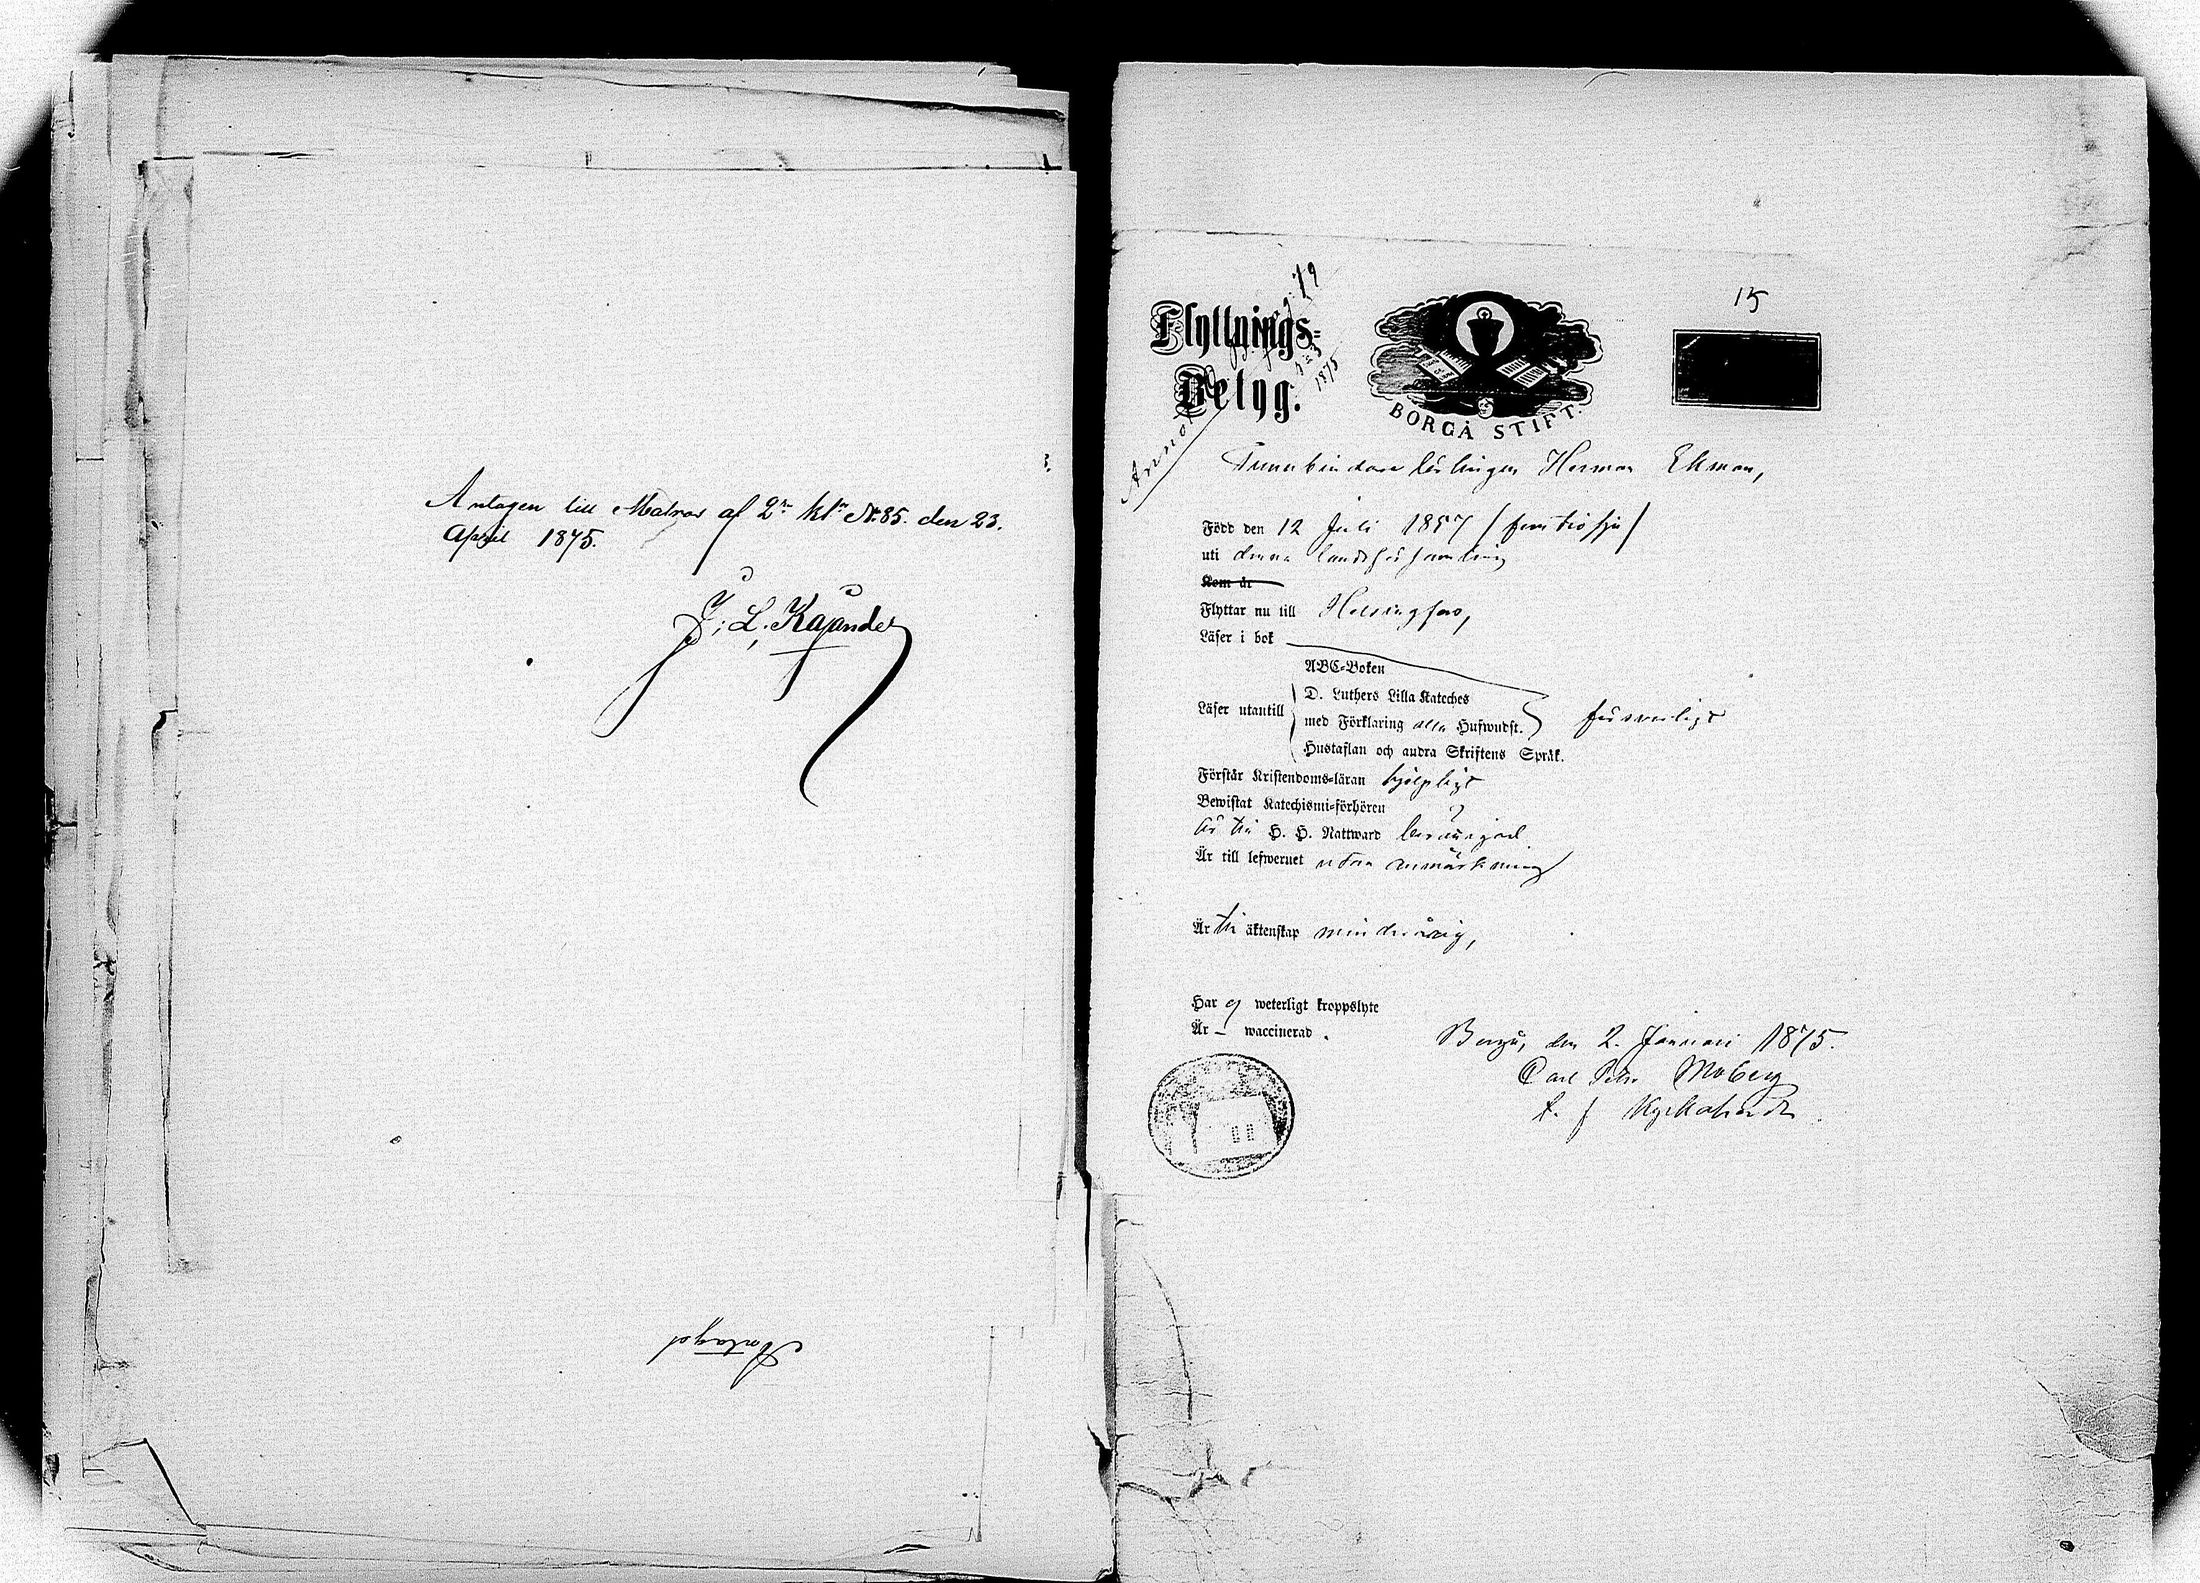 Antagen till Matros af 2ra kln Nr. 85. den 23.
April 1875.
J. L. Kajander
Antagod
15
Flyttnings-
Betyg.
1875
BORGÅ STIFT.
Tunnbindare lärlingen Herman Ekman,
Född den 12 Juli 1857 / femtiosju /
uti denna landsförsamling
Kom år
Flyttar nu till Helsingfors,
Läser i bok
ABC-Boken
Läser utantill
D. Luthers Lilla Kateches
med Förklaring Hufwudst.
Hustaflan och andra Skriftens Språk.
försvarligt
Förstår Kristendoms-läran hjelpligt
Bewistat Katechismi-förhören
H. H. Nattward
Är till lefwernet utan anmärkning
Är till äktenskap minderårig,
Har ej weterligt kroppslyte
Är – waccinerad.
Borgå, den 2. Januari 1875.
Carl Petr Moberg